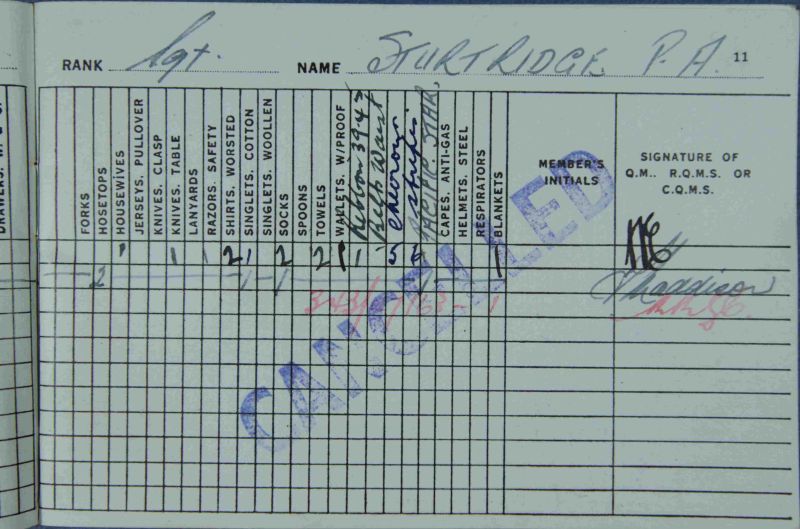 RANK Sgt. NAME STURTRIDGE P. A. 11
DRAWERS.
FORKS
HOSETOPS
HOUSEWIVES
JERSEYS, PULLOVER
KNIVES, CLASP
KNIVES, TABLE
LANYARDS
RAZORS, SAFETY
SHIRTS, WORSTED
SINGLETS, COTTON
SINGLETS, WOOLLEN
SOCKS
SPOONS
TOWELS
WALLETS, W/PROOF
Ribbon 39-45
Belts Waist
Chevrons
3 stripes
PACIFIC STAR.
CAPES, ANTI-GAS
HELMETS, STEEL
RESPIRATORS
BLANKETS
MEMBER'S
INITIALS
SIGNATURE OF
Q.M.. R.Q.M.S. OR
C.Q.M.S.
1 1 1 2 1 2 2 1 1 1
2 1 1 1 Maddison
1
CANCELLED